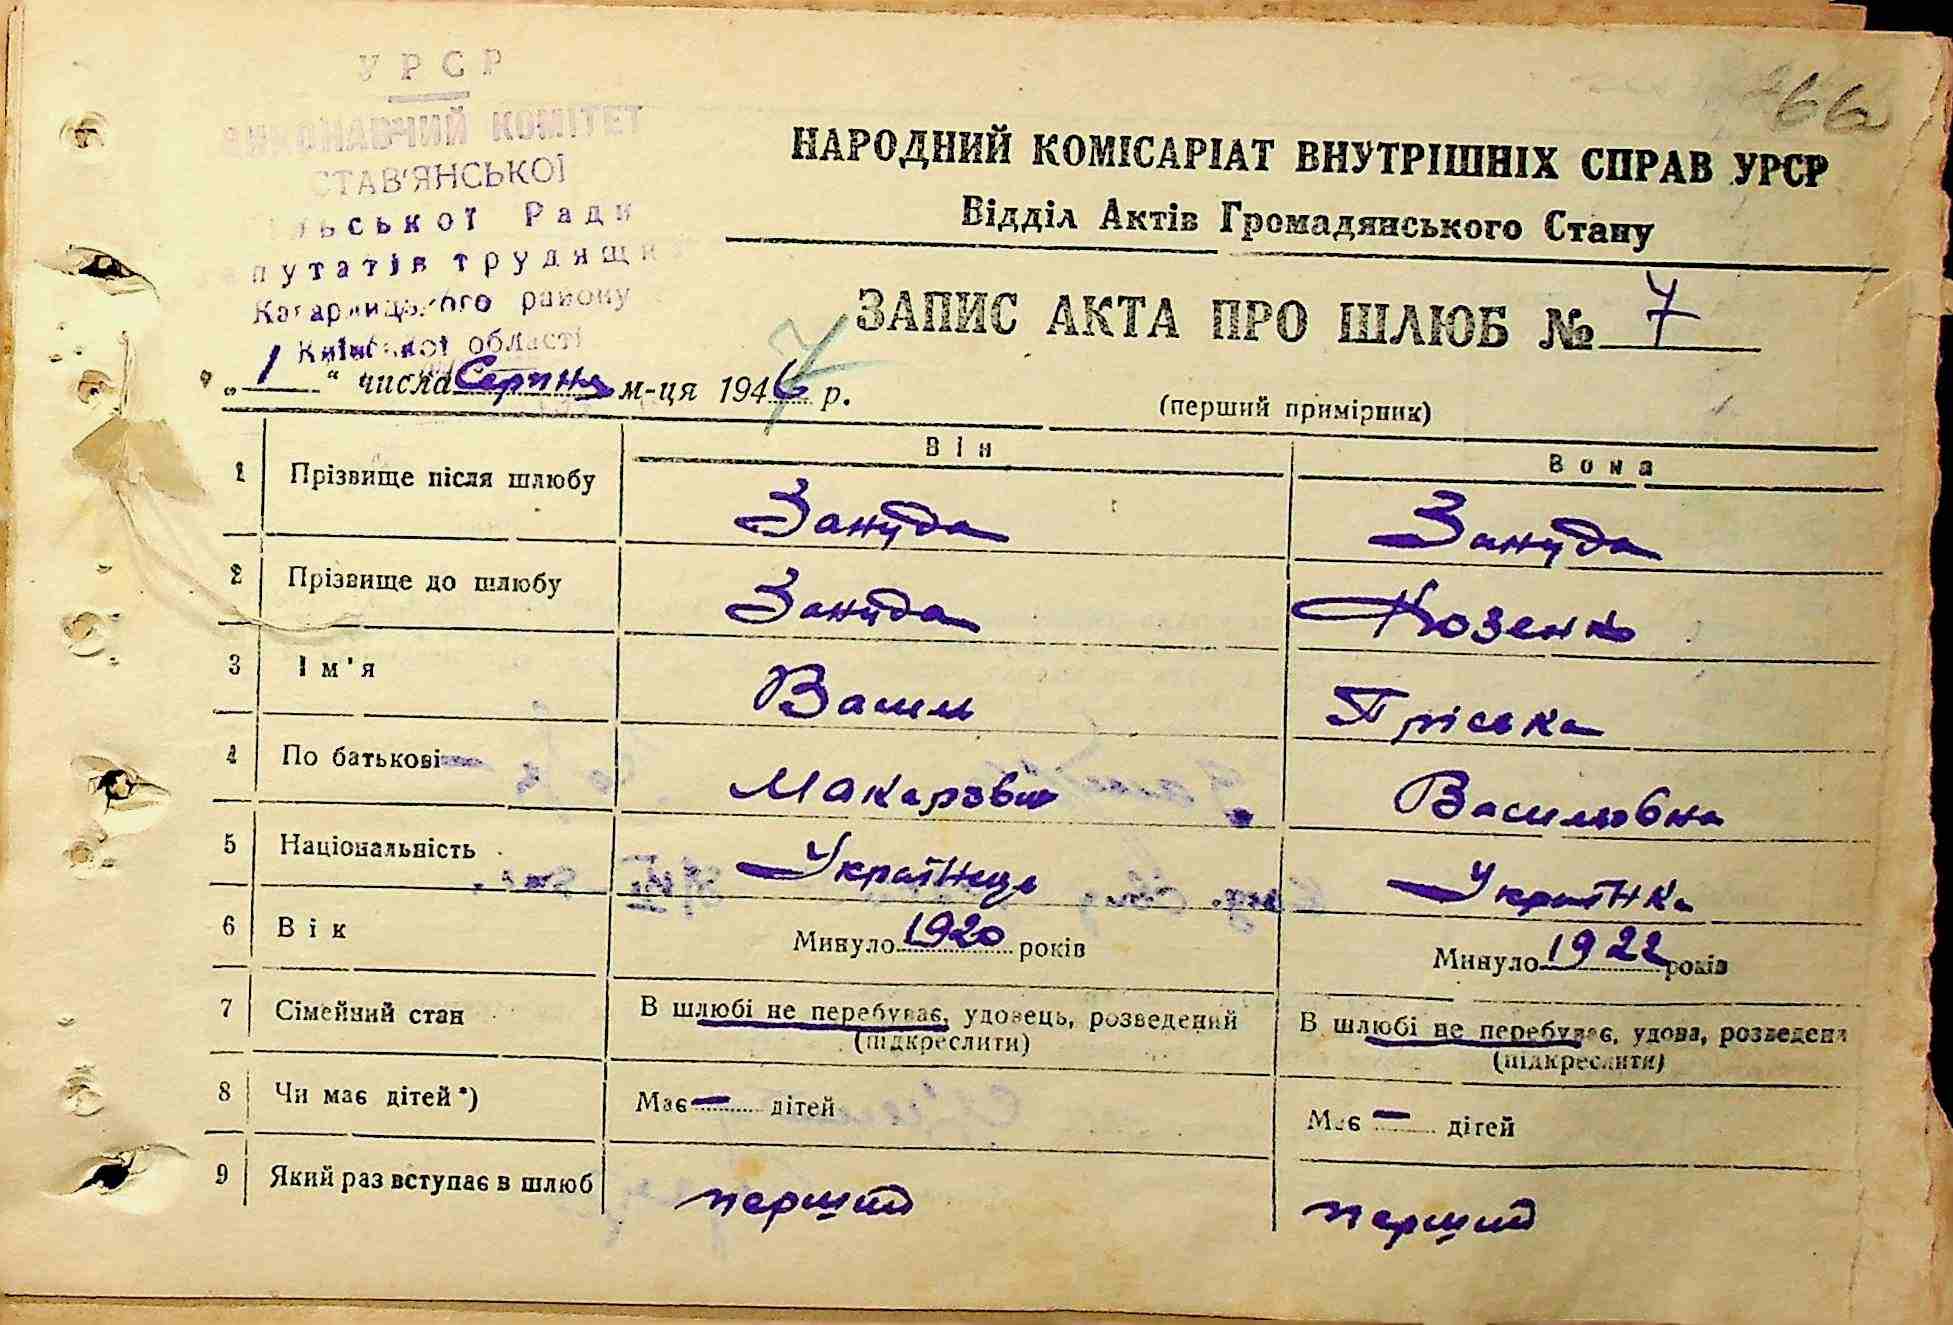 66
УРСР
ВИКОНАВЧИЙ КОМІТЕТ
СТАВ'ЯНСЬКОЇ
сільської Ради
депутатів трудящих
Кагарлицького району
Київської області
НАРОДНИЙ КОМІСАРІАТ ВНУТРІШНІХ СПРАВ УРСР
Відділ Актів Громадянського Стану
ЗАПИС АКТА ПРО ШЛЮБ № 7
7
„ 1 “ числа Серпня м-ця 1946 р.
(перший примірник)
Він Вона
1 Прізвище після шлюбу Зануда Зануда
2 Прізвище до шлюбу Зануда Козенко
3 Ім'я Василь Пріська
4 По батькові Макарович Василівна
5 Національність Українець Українка
6 Вік Минуло 1920 років Минуло 1922 років
7 Сімейний стан В шлюбі не перебуває, удовець, розведений В шлюбі не перебуває, удова, розведена
(підкреслити) (підкреслити)
8 Чи має дітей*) Має — дітей Має — дітей
9 Який раз вступає в шлюб перший перший